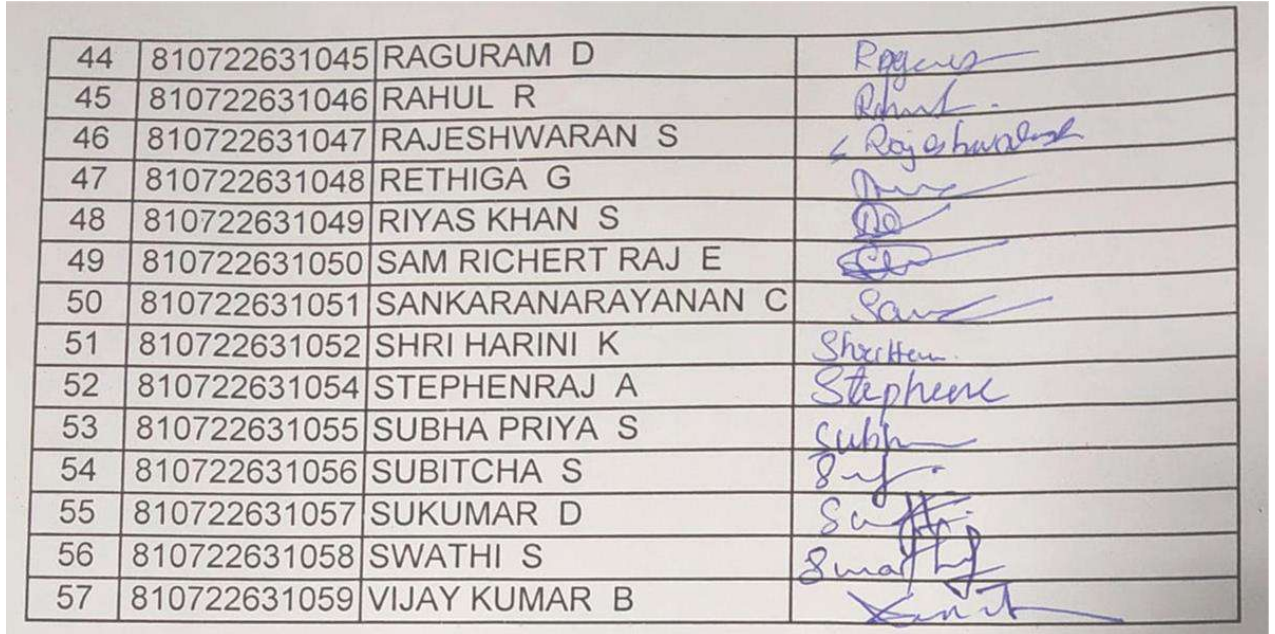 44 810722631045 RAGURAM D
45 810722631046 RAHUL R
46 810722631047 RAJESHWARAN S
47 810722631048 RETHIGA G
48 810722631049 RIYAS KHAN S
49 810722631050 SAM RICHERT RAJ E
50 810722631051 SANKARANARAYANAN C
51 810722631052 SHRI HARINI K
52 810722631054 STEPHENRAJ A
53 810722631055 SUBHA PRIYA S
54 810722631056 SUBITCHA S
55 810722631057 SUKUMAR D
56 810722631058 SWATHI S
57 810722631059 VIJAY KUMAR B